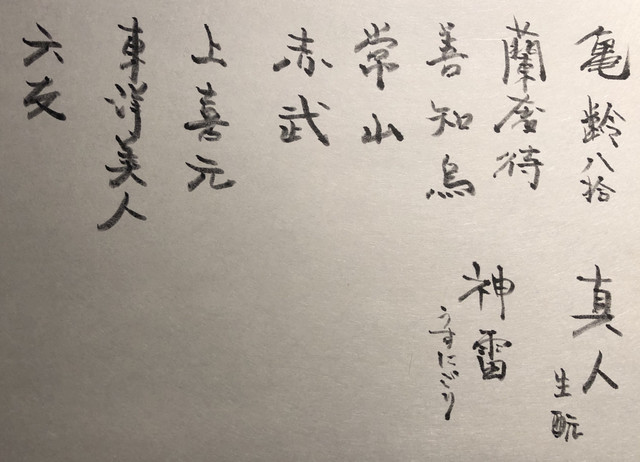 亀齢八拾
蘭奢待
善知鳥
常山
赤武
上喜元
東洋美人
六友
真人
生酛
神雷
うすにごり